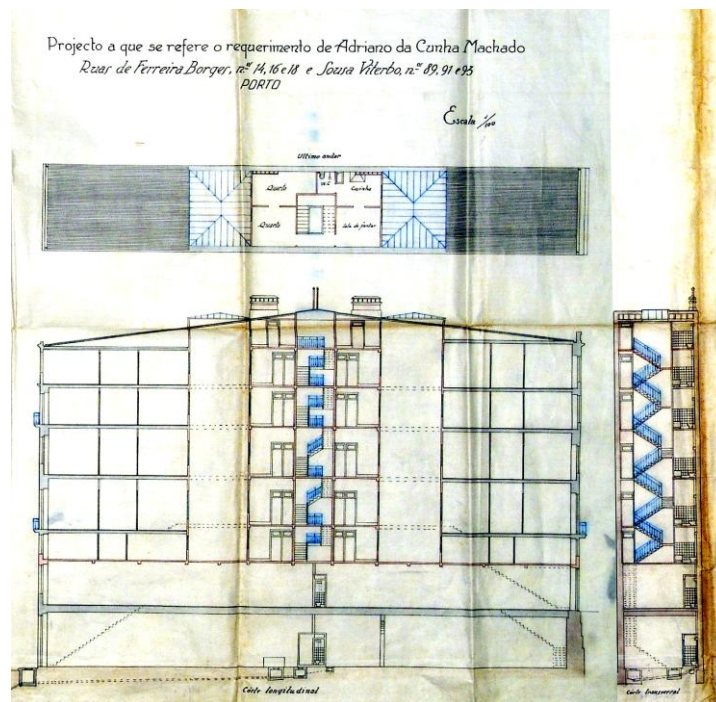 Projecto a que se refere o requerimento de Adriano da Cunha Machado
Ruas de Ferreira Borges, n.os 14, 16 e 18 e Sousa Viterbo, n.os 89, 91 e 93
PORTO
Escala 1/100
Ultimo andar
Quarto
W.C.
Cozinha
Quarto
Sala de jantar
Córte longitudinal
Córte transversal